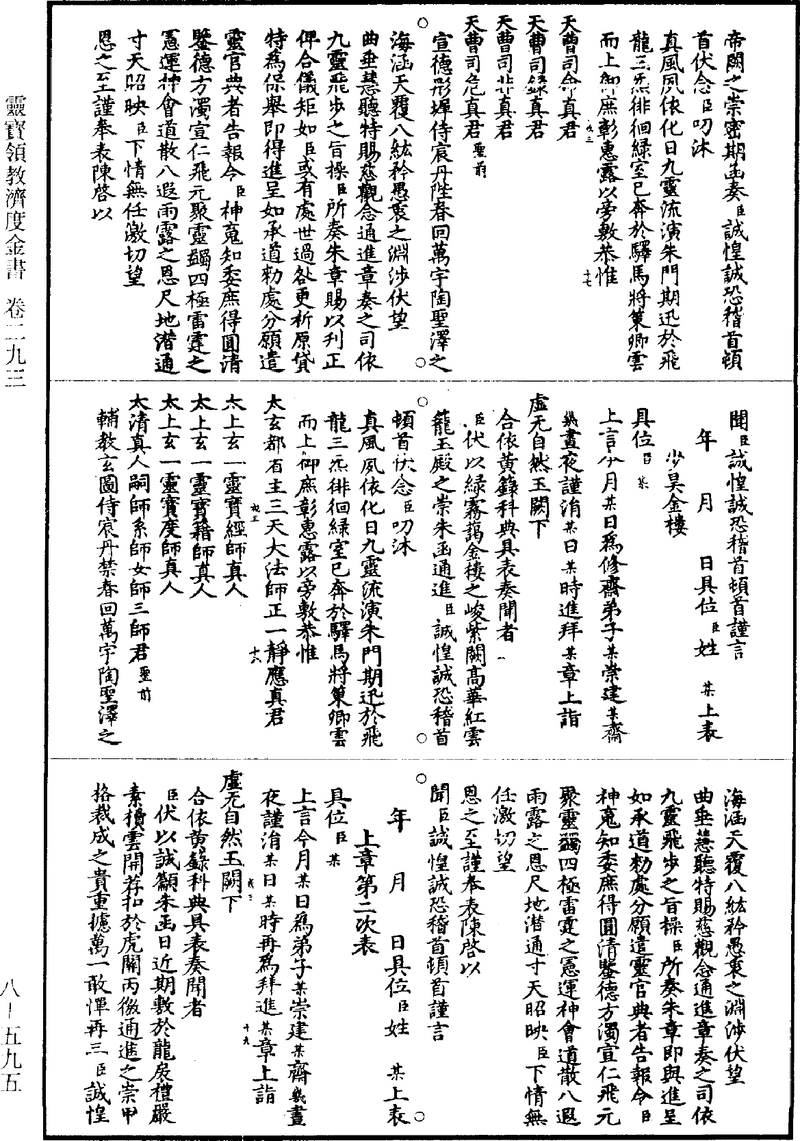 帝闕之崇密期函奏臣誠惶誠恐稽首頓
首伏念臣叨沐
真風夙依化日九靈流演朱門期迅於飛
龍三炁徘徊綠室已奔於驛馬將策卿雲
而上御庶彰惠露以旁敷恭惟
天曹司命真君
天曹司錄真君
天曹司非真君
天曹司危真君聖前
宣德彤墀侍宸丹陛春回萬宇陶聖澤之
海涵天覆八紘矜愚衷之淵涉伏望
曲垂慧聽特賜慈觀念通進章奏之司依
九靈飛步之旨操臣所奏朱章賜以刋正
俾合儀矩如臣或有處世過咎更祈原貸
特為保舉即得進呈如承道勑處分願遣
靈官典者告報今臣神䰟知委庶得圓清
鑒德方濁宣仁飛元聚靈蠲四極雷霆之
憲運神會道散八遐雨露之恩尺地潛通
寸天昭映臣下情無任激切望
恩之至謹奉表陳啓以
聞臣誠惶誠恐稽首頓首謹言
年 月 日具位臣姓 某上表
少昊金樓
具位臣某
上言今月某日為修齋弟子某崇建某齋
幾晝夜謹涓某日某時進拜某章上詣
虛无自然玉闕下
合依黃籙科典具表奏聞者
臣伏以綠霧藹金樓之峻紫闕高華紅雲
籠玉殿之崇朱函通進臣誠惶誠恐稽首
頓首伏念臣叨沐
真風夙依化日九靈流演朱門期迅於飛
龍三炁徘徊綠室已奔於驛馬將策卿雲
而上御庶彰惠露以旁敷恭惟
太玄都省主三天大法師正一靜應真君
太上玄一靈寶經師真人
太上玄一靈寶籍師真人
太上玄一靈寶度師真人
太清真人嗣師系師女師三師君聖前
輔教玄圖侍宸丹禁春回萬宇陶聖澤之
海涵天覆八紘矜愚衷之淵涉伏望
曲垂慧聽特賜慈觀念通進章奏之司依
九靈飛步之旨操臣所奏朱章即與進呈
如承道勑處分願遣靈官典者告報今臣
神䰟知委庶得圓清鑒德方濁宣仁飛元
聚靈蠲四極雷霆之憲運神會道散八遐
雨露之恩尺地潛通寸天昭映臣下情無
任激切望
恩之至謹奉表陳啓以
聞臣誠惶誠恐稽首頓首謹言
年 月 日具位臣姓 某上表
上章第二次表
具位臣某
上言今月某日為弟子某崇建某齋幾晝
夜謹涓某日某時再為拜進某章上詣
虛无自然玉闕下
合依黃籙科典具表奏聞者
臣伏以誠籲朱函日近期敷於龍扆禮嚴
素積雲開荐扣於虎關丙徹通進之崇甲
格裁成之貴重攄萬一敢憚再三臣誠惶
靈寶領教濟度金書 卷二九三
八－五九五